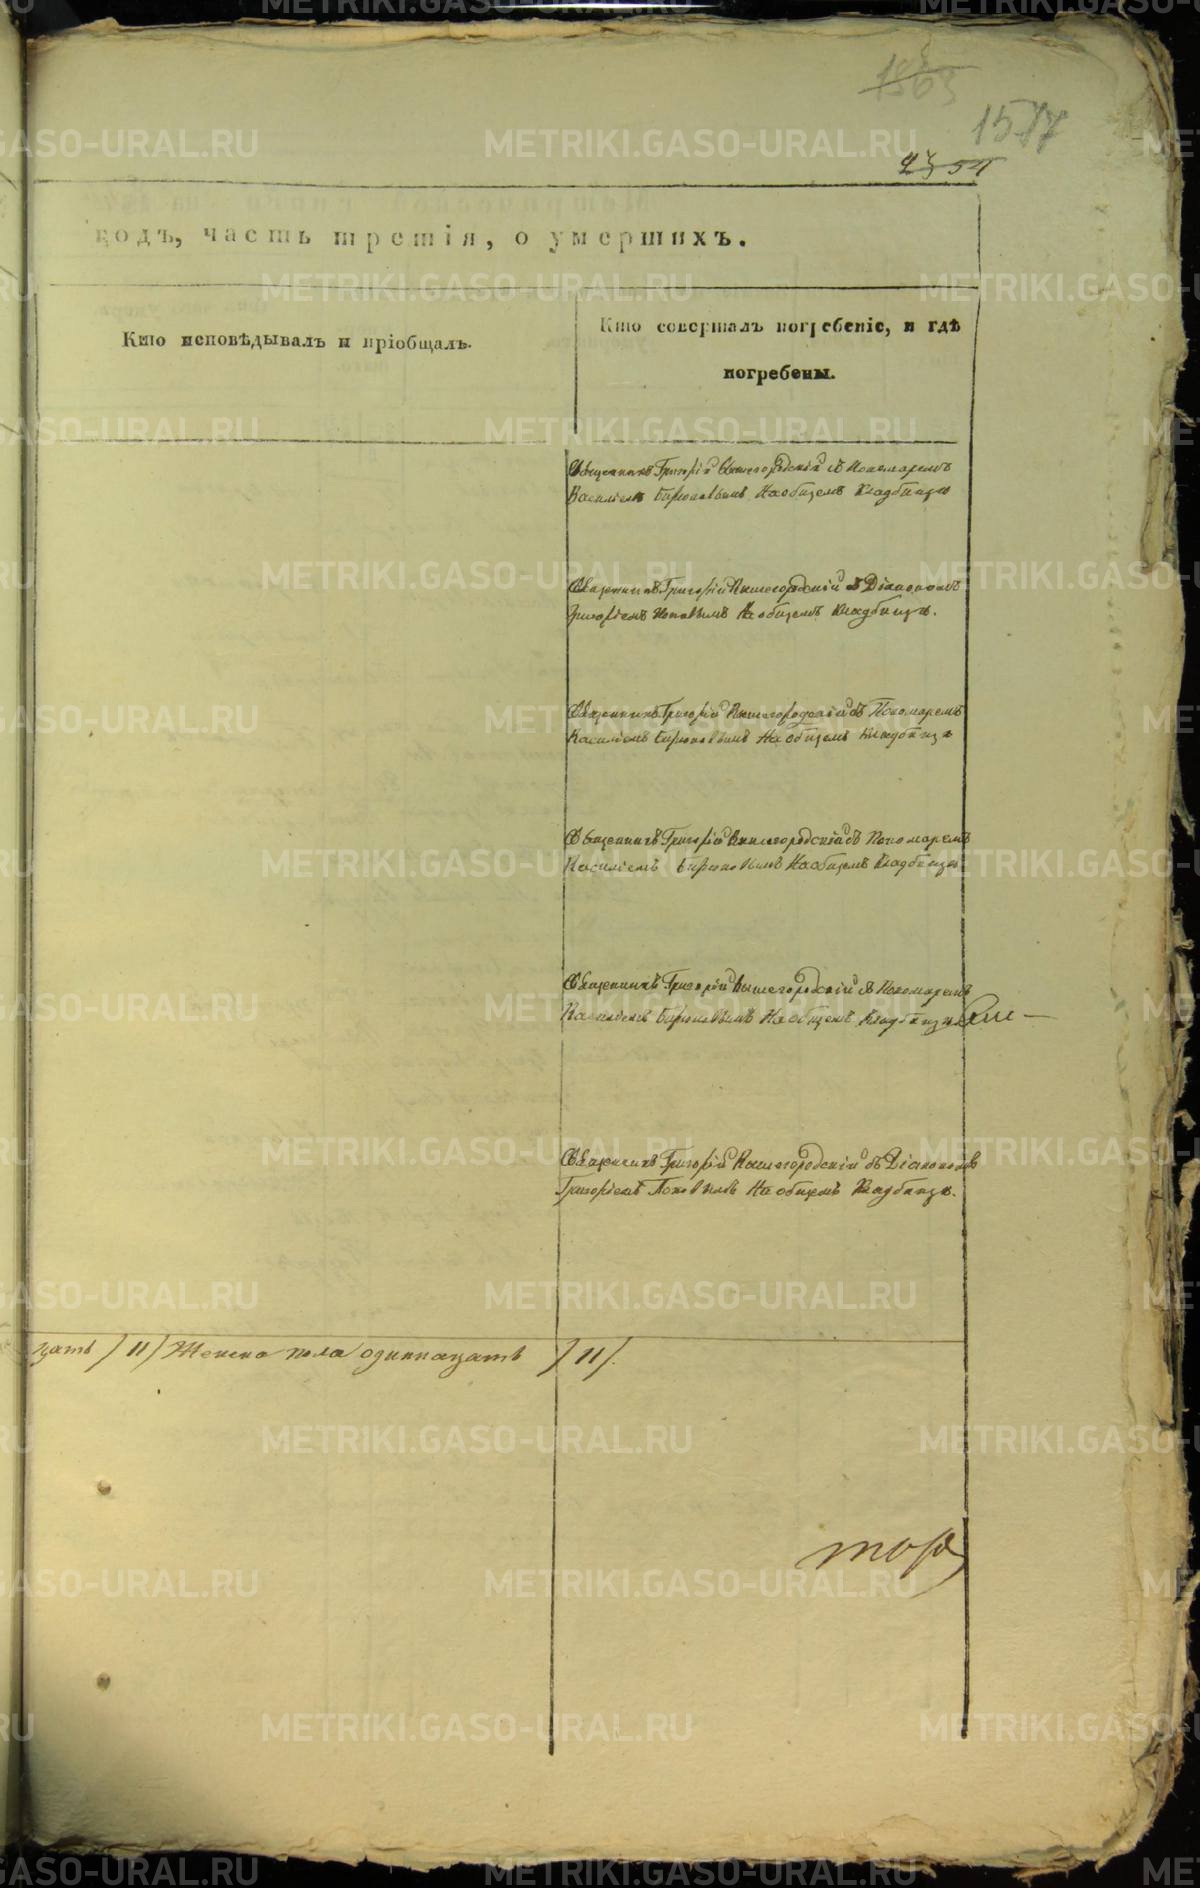 1863
1577
2354
годъ, часть третія, о умершихъ.
Кто исповѣдывалъ и пріобщалъ.
Кто совершалъ погребеніе, и гдѣ
погребены.
Священникъ Григорій Вышегородскій съ Пономаремъ
Василіемъ Бирюковымъ На общемъ Кладбищѣ
Священникъ Григорій Вышегородскій съ Діакономъ
Григоріемъ Поповымъ На общемъ Кладбищѣ.
Священникъ Григорій Вышегородскій съ Пономаремъ
Василіемъ Бирюковымъ На общемъ Кладбищѣ
Священникъ Григорій Вышегородскій съ Пономаремъ
Василіемъ Бирюковымъ На общемъ Кладбищѣ
Священникъ Григорій Вышегородскій съ Пономаремъ
Василіемъ Бирюковымъ На общемъ Кладбищѣ
Священникъ Григорій Вышегородскій съ Діакономъ
Григоріемъ Поповымъ На общемъ Кладбищѣ.
цать /11/ Женска пола одиннацать /11/.
METRIKI.GASO-URAL.RU